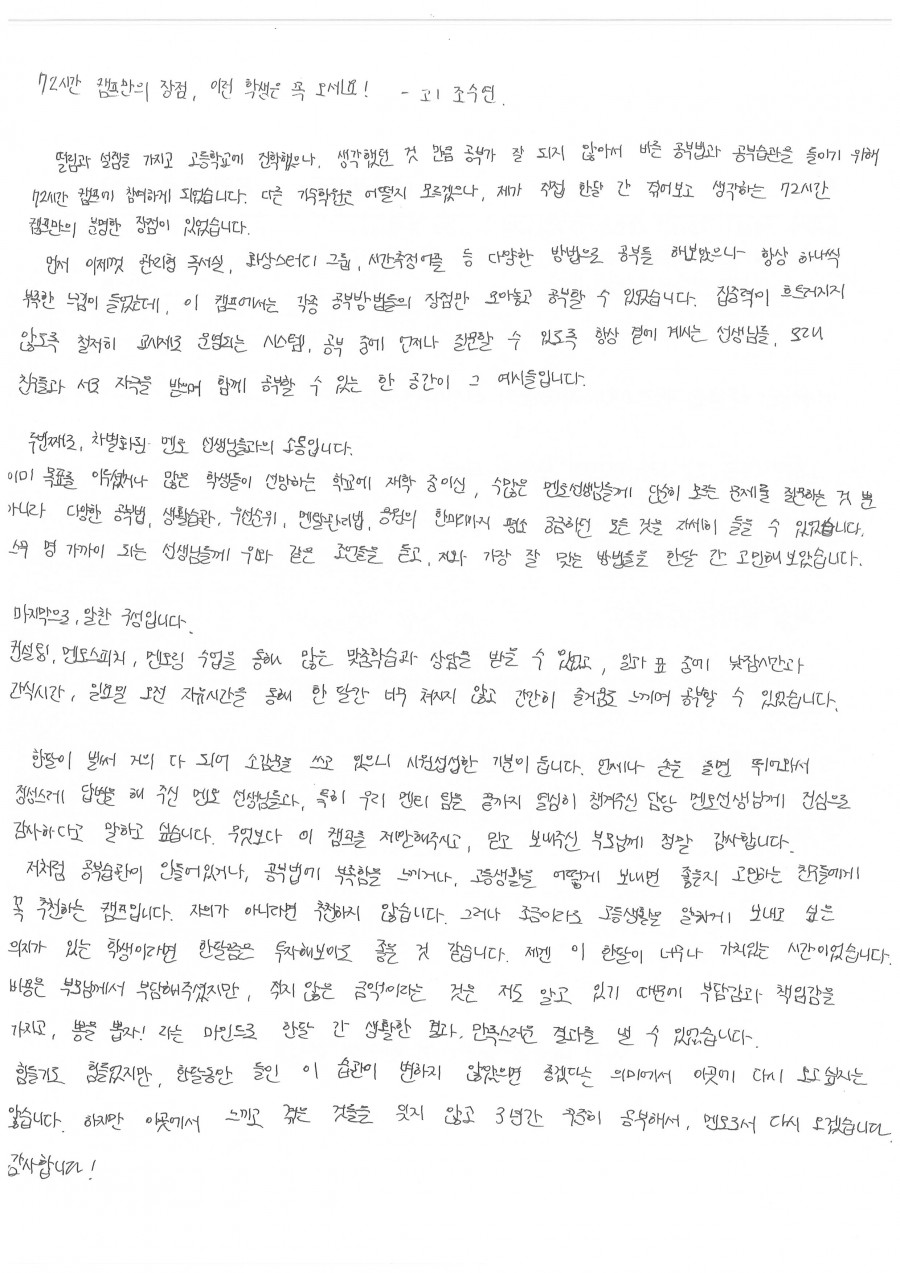 72시간 캠프만의 장점, 이런 학생은 꼭 오세요! - 고1 조수연.
떨림과 설렘을 가지고 고등학교에 진학했으나, 생각했던 것 만큼 공부가 잘 되지 않아서 바른 공부법과 공부습관을 들이기 위해
72시간 캠프에 참여하게 되었습니다. 다른 기숙학원은 어떨지 모르겠으나, 제가 직접 한달 간 겪어보고 생각하는 72시간
캠프만의 분명한 장점이 있었습니다.
먼저 이제껏 관리형 독서실, 화상스터디 그룹, 시간측정어플 등 다양한 방법으로 공부를 해보았으나 항상 하나씩
부족한 느낌이 들었는데, 이 캠프에서는 각종 공부방법들의 장점만 모아놓고 공부할 수 있었습니다. 집중력이 흐트러지지
않도록 철저히 교시제로 운영되는 시스템, 공부 중에 언제나 질문할 수 있도록 항상 곁에 계시는 선생님들, 또래
친구들과 서로 자극을 받으며 함께 공부할 수 있는 한 공간이 그 예시들입니다.
두번째로, 차별화된 멘토 선생님들과의 소통입니다.
이미 목표를 이루셨거나 많은 학생들이 선망하는 학교에 재학 중이신, 수많은 멘토선생님들께 단순히 모르는 문제를 질문하는 것 뿐
아니라 다양한 공부법, 생활습관, 우선순위, 멘탈관리법, 응원의 한마디까지 평소 궁금하던 모든 것을 자세히 들을 수 있었습니다.
스무 명 가까이 되는 선생님들께 우와 같은 조언들을 듣고, 저와 가장 잘 맞는 방법들을 한달 간 고민해보았습니다.
마지막으로, 알찬 구성입니다.
컨설팅, 멘토스피치, 멘토링 수업을 통해 많은 맞춤학습과 상담을 받을 수 있었고, 일과 표 중에 낮잠시간과
간식시간, 일요일 오전 자유시간을 통해 한 달간 너무 처지지 않고 간간히 즐거움도 느끼며 공부할 수 있었습니다.
한달이 벌써 거의 다 되어 소감문을 쓰고 있으니 시원섭섭한 기분이 듭니다. 언제나 손을 들면 뛰어와서
정성스레 답변을 해 주신 멘토 선생님들과, 특히 우리 멘티 팀을 끝까지 열심히 챙겨주신 담당 멘토선생님께 진심으로
감사하다고 말하고 싶습니다. 무엇보다 이 캠프를 제안해주시고, 믿고 보내주신 부모님께 정말 감사합니다.
저처럼 공부습관이 안들어있거나, 공부법에 부족함을 느끼거나, 고등생활을 어떻게 보내면 좋을지 고민하는 친구들에게
꼭 추천하는 캠프입니다. 자의가 아니라면 추천하지 않습니다. 그러나 조금이라도 고등생활을 알차게 보내고 싶은
의지가 있는 학생이라면 한달쯤은 투자해보아도 좋을 것 같습니다. 제겐 이 한달이 너무나 가치있는 시간이었습니다.
비용은 부모님께서 부담해주셨지만, 적지 않은 금액이라는 것은 저도 알고 있기 때문에 부담감과 책임감을
가지고, 뽕을 뽑자! 라는 마인드로 한달 간 생활한 결과, 만족스러운 결과를 낼 수 있었습니다.
힘들기도 힘들었지만, 한달동안 들인 이 습관이 변하지 않았으면 좋겠다는 의미에서 이곳에 다시 오고 싶지는
않습니다. 하지만 이곳에서 느끼고 겪은 것들을 잊지 않고 3년간 꾸준히 공부해서, 멘토로서 다시 오겠습니다.
감사합니다!